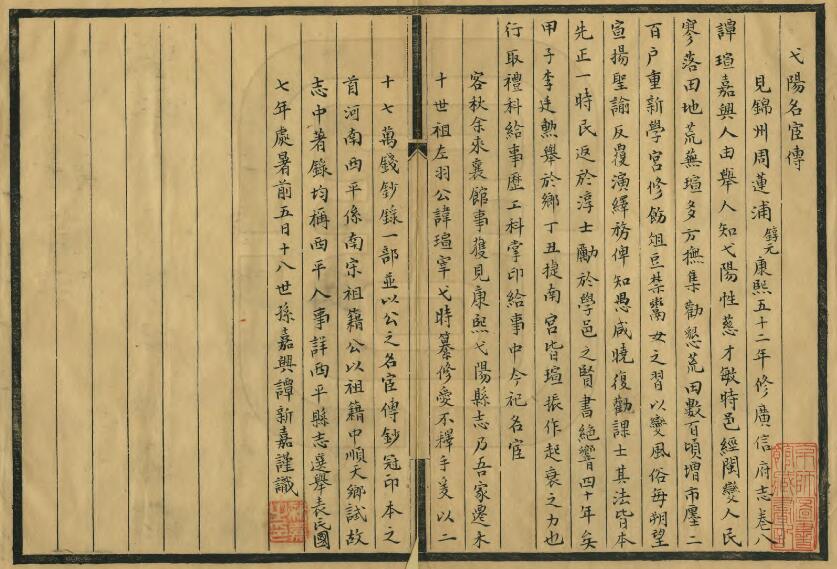 弋陽名宦傳
見錦州周蓮浦錞元康熙五十二年修廣信府志卷八
譚瑄嘉興人由舉人知弋陽性慈才敏時邑經閩變人民
寥落田地荒蕪瑄多方撫集勸懇荒田數百頃增市廛二
百户重新學宮修飭俎豆禁鬻女之習以變風俗每朔望
宣揚聖諭反覆演繹務俾知愚咸曉復勸課士其法皆本
先正一時民返於淳士勵於學邑之賢書絶響四十年矣
甲子李廷勲舉於鄉丁丑捷南宮皆瑄振作起衰之力也
行取禮科給事歷工科掌印給事中今祀名宦
客秋余來襄館事獲見康熙弋陽縣志乃吾家遷禾
十世祖左羽公諱瑄宰弋時纂修愛不釋手爰以二
十七萬錢鈔錄一部並以公之名宦傳鈔冠印本之
首河南西平係南宋祖籍公以祖籍中順天鄉試故
志中著錄均稱西平人事詳西平縣志選舉表民國
七年處暑前五日十八世孫嘉興譚新嘉謹識